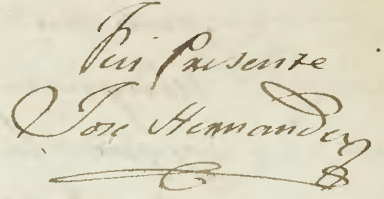 Fui Presente
Jose Hernandez